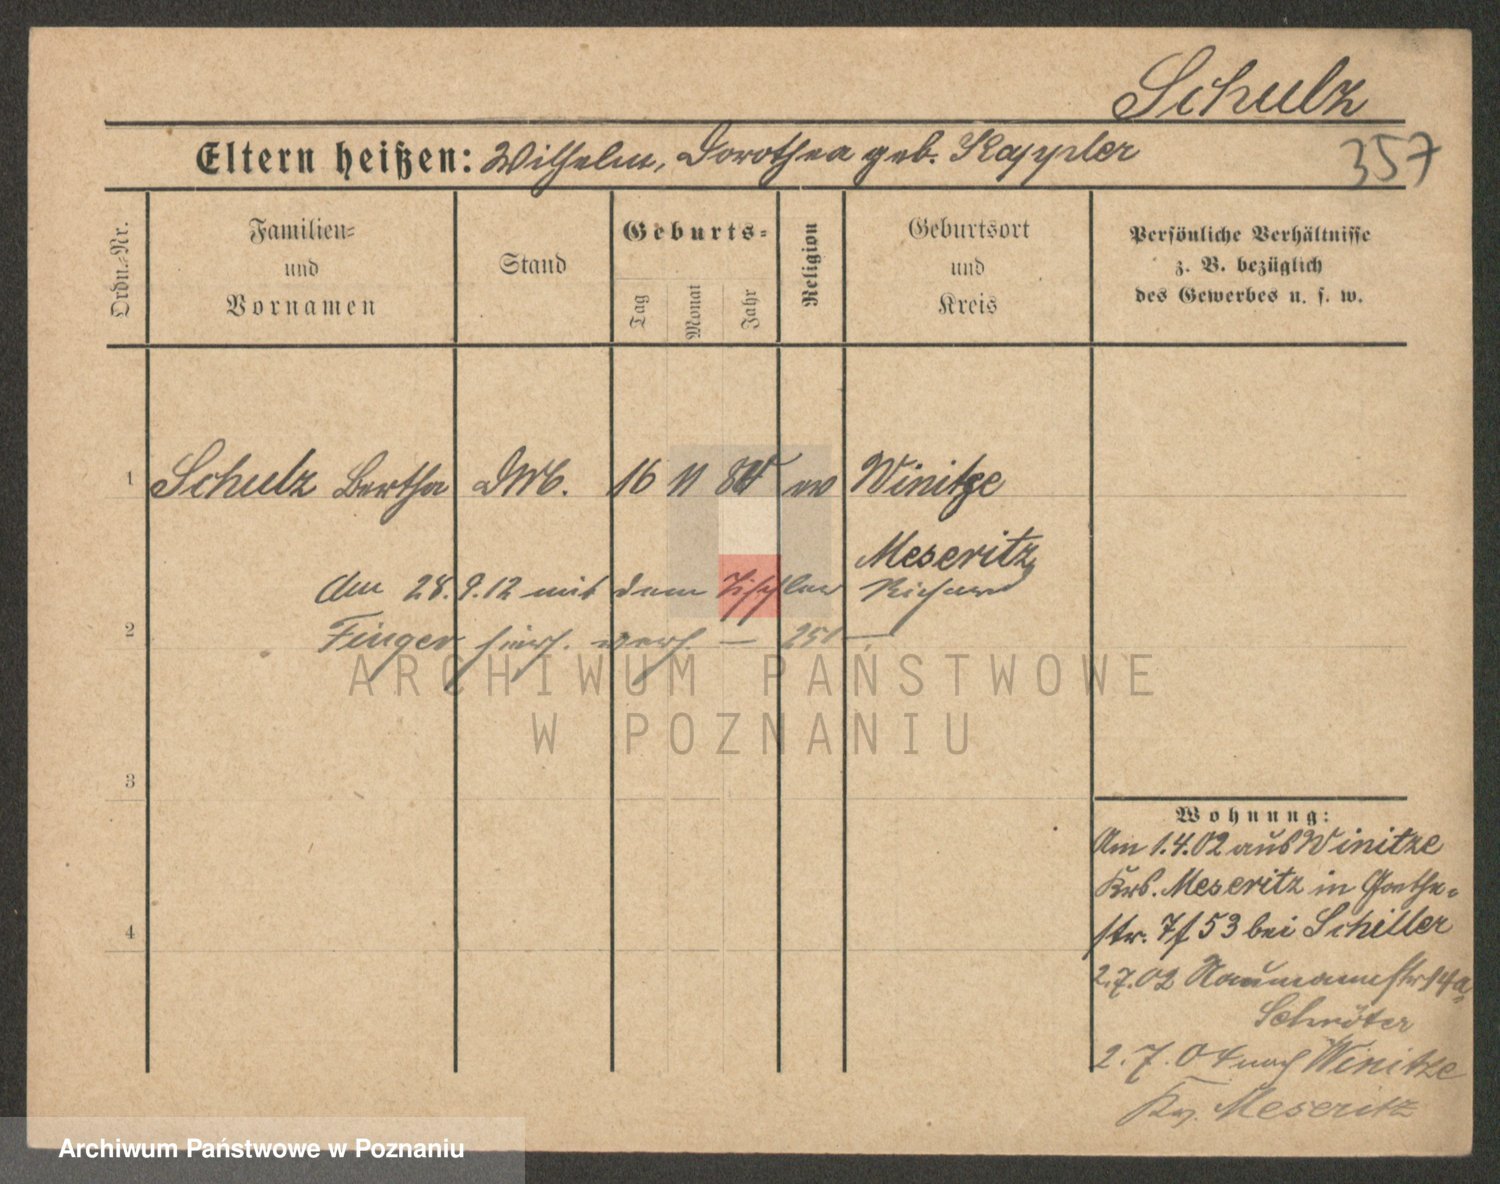 Schulz
Eltern heißen: Wilhelm, Dorothea geb. Kappler
357
Ordn.-Nr.
Familien-
und
Vornamen
Stand
Geburts-
Tag
Monat
Jahr
Religion
Geburtsort
und
Kreis
Persönliche Verhältnisse
z. B. bezüglich
des Gewerbes u. s. w.
1 Schulz Bertha 16 11 ev Winitze
Meseritz
Am 28.9.12 mit dem Tischler Richard
2 Finger hier verh. — 251 —
ARCHIWUM PAŃSTWOWE
W POZNANIU
3
4
Wohnung:
Am 1.4.02 aus Winitze
Krs. Meseritz in Goethe-
str. 53 bei Schiller
2.7.02 Naumannstr 14a
Schröter
2.7.04 nach Winitze
Kr. Meseritz
Archiwum Państwowe w Poznaniu